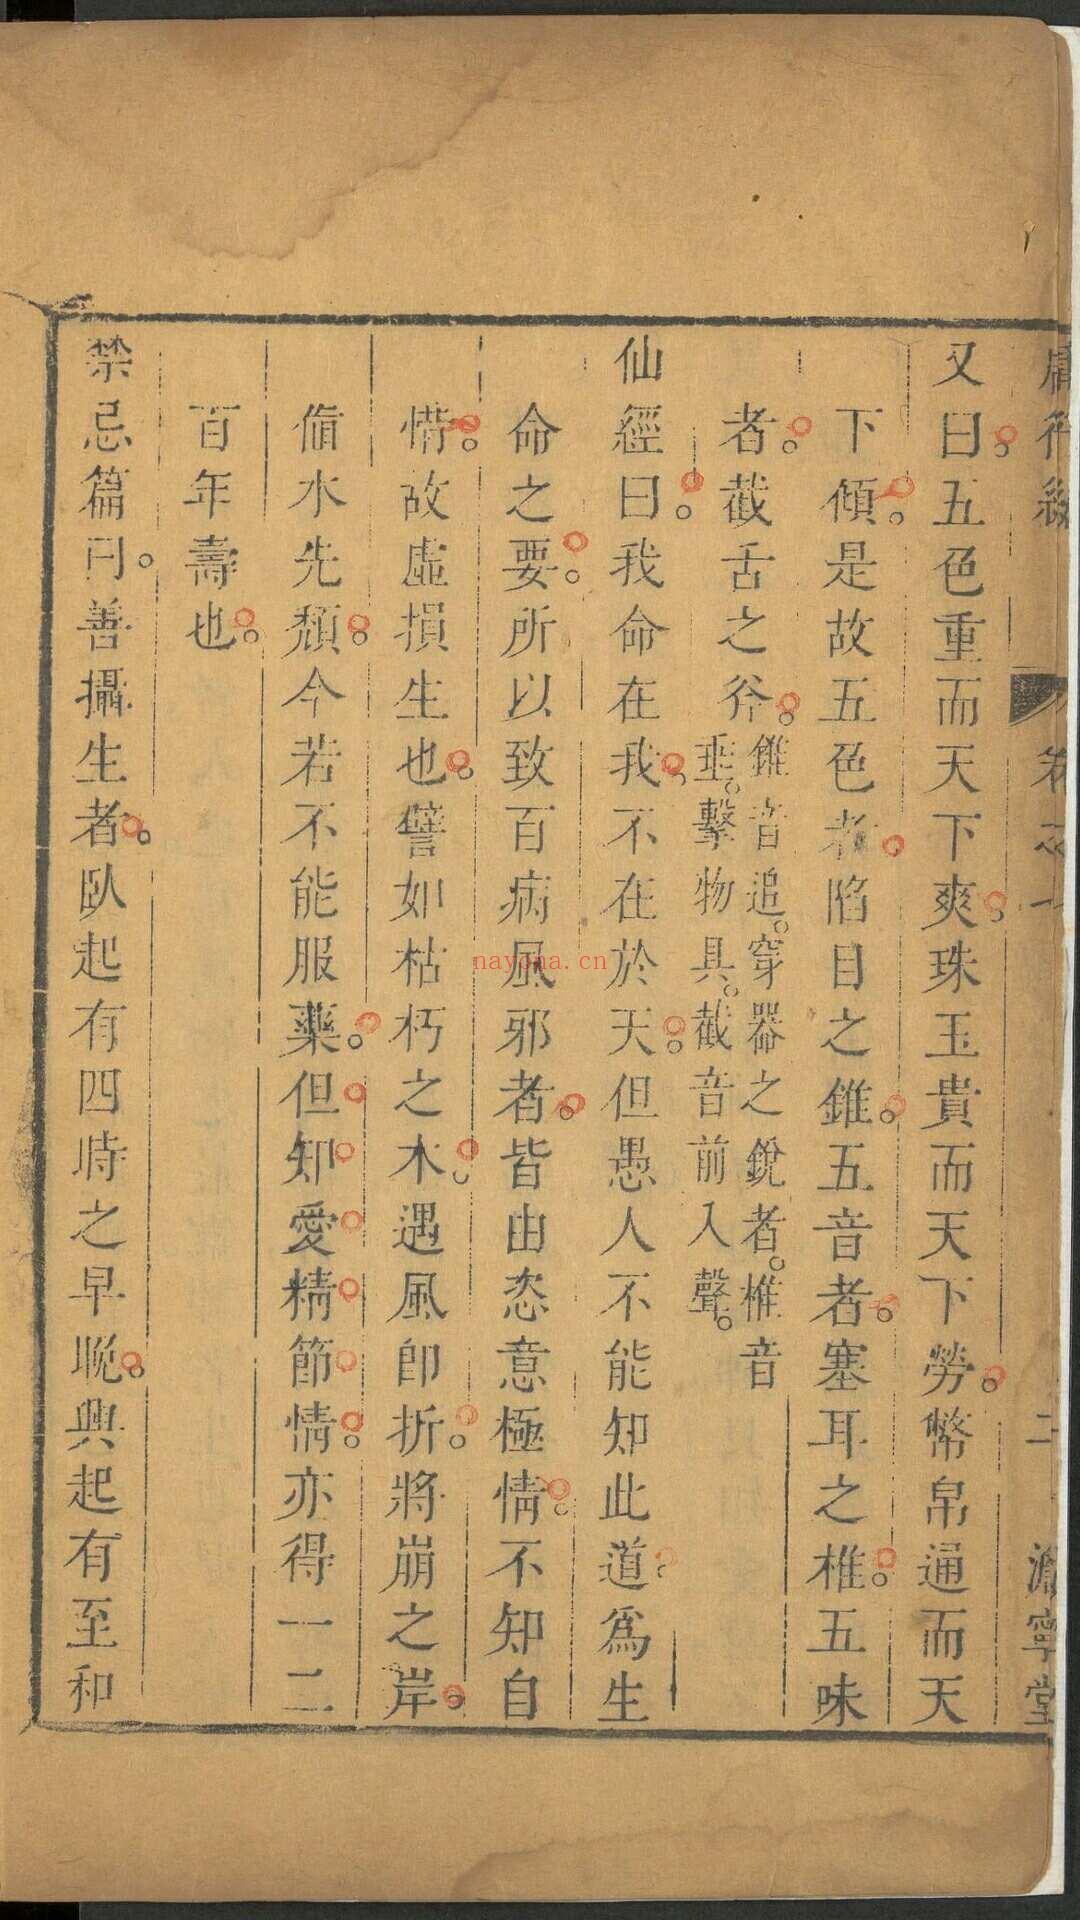 又曰。五色重而天下爽。珠玉貴而天下勞。幣帛通而天
下傾。是故五色者陷目之錐。五音者。塞耳之椎。五味
者。截舌之斧。錐音追。穿器之銳者。椎音
垂。擊物具。截音前入聲。
仙經曰。我命在我。不在於天。但愚人不能知此道。爲生
命之要。所以致百病風邪者。皆由恣意極情。不知自
惜。故虛損生也。譬如枯朽之木。遇風即折。將崩之岸。
値水先頹。今若不能服藥。但知愛精節情。亦得一二
百年壽也。
禁忌篇曰。善攝生者。臥起有四時之早晚。興起有至和
卷之一
二
澹寧堂
nayona.cn